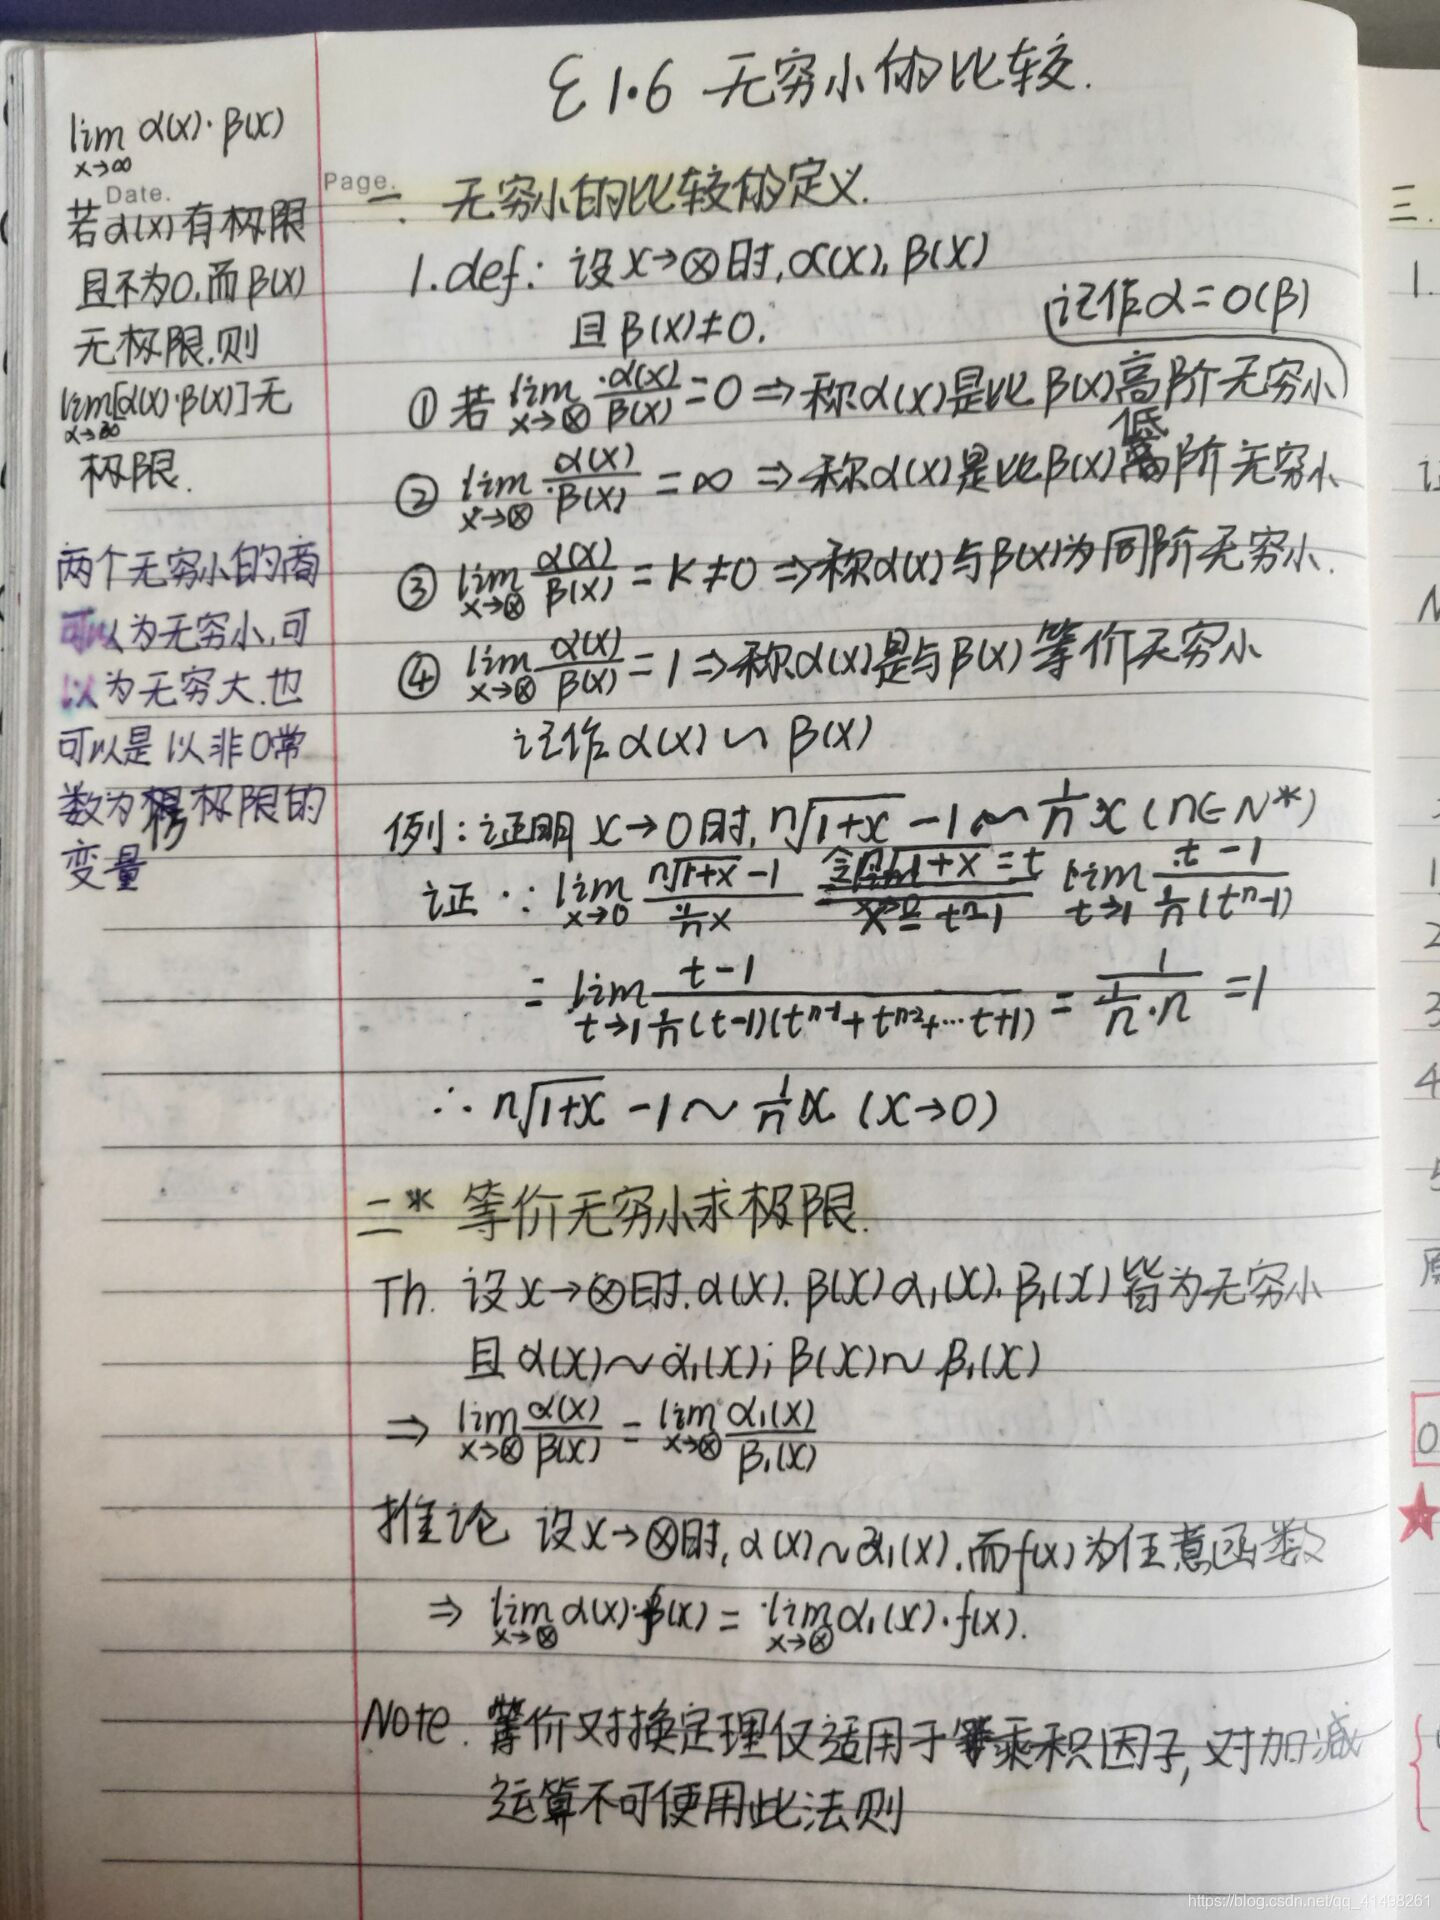 ξ 1.6 无穷小的比较.
lim α(x)·β(x)
x→∞
Date.
若α(x)有极限
且不为0,而β(x)
无极限.则
lim[α(x)·β(x)]无
极限.
两个无穷小的商
可以为无穷小,可
以为无穷大.也
可以是以非0常
数为极限的
变量
Page.
一. 无穷小的比较的定义.
1.def: 设x→⊗时,α(x),β(x)
且β(x)≠0.
记作α=o(β)
① 若 lim x→⊗ α(x)/β(x) = 0 ⇒ 称α(x)是比β(x)高阶无穷小
② lim x→⊗ α(x)/β(x) = ∞ ⇒ 称α(x)是比β(x)低阶无穷小
③ lim x→⊗ α(x)/β(x) = K≠0 ⇒ 称α(x)与β(x)为同阶无穷小.
④ lim x→⊗ α(x)/β(x) = 1 ⇒ 称α(x)是与β(x)等价无穷小
记作α(x) ∽ β(x)
例:证明 x→0时, n√1+x -1 ~ 1/n x (n∈N*)
证 ∵ lim x→0 (n√1+x -1)/(1/n x) 令n√1+x = t x = t^n-1 lim t→1 (t-1)/(1/n (t^n-1))
= lim t→1 (t-1)/(1/n (t-1)(t^n-1 + t^n-2 + ··· t+1)) = 1/(1/n · n) = 1
∴ n√1+x -1 ~ 1/n x (x→0)
二* 等价无穷小求极限.
Th. 设x→⊗时.α(x).β(x)α₁(x).β₁(x)皆为无穷小
且α(x)~α₁(x);β(x)~β₁(x)
⇒ lim x→⊗ α(x)/β(x) = lim x→⊗ α₁(x)/β₁(x)
推论 设x→⊗时,α(x)~α₁(x).而f(x)为任意函数
⇒ lim x→⊗ α(x)·f(x) = lim x→⊗ α₁(x)·f(x).
Note. 等价对换定理仅适用于乘积因子,对加减
运算不可使用此法则
三.
1.
2
3
4
5
https://blog.csdn.net/qq_41498261